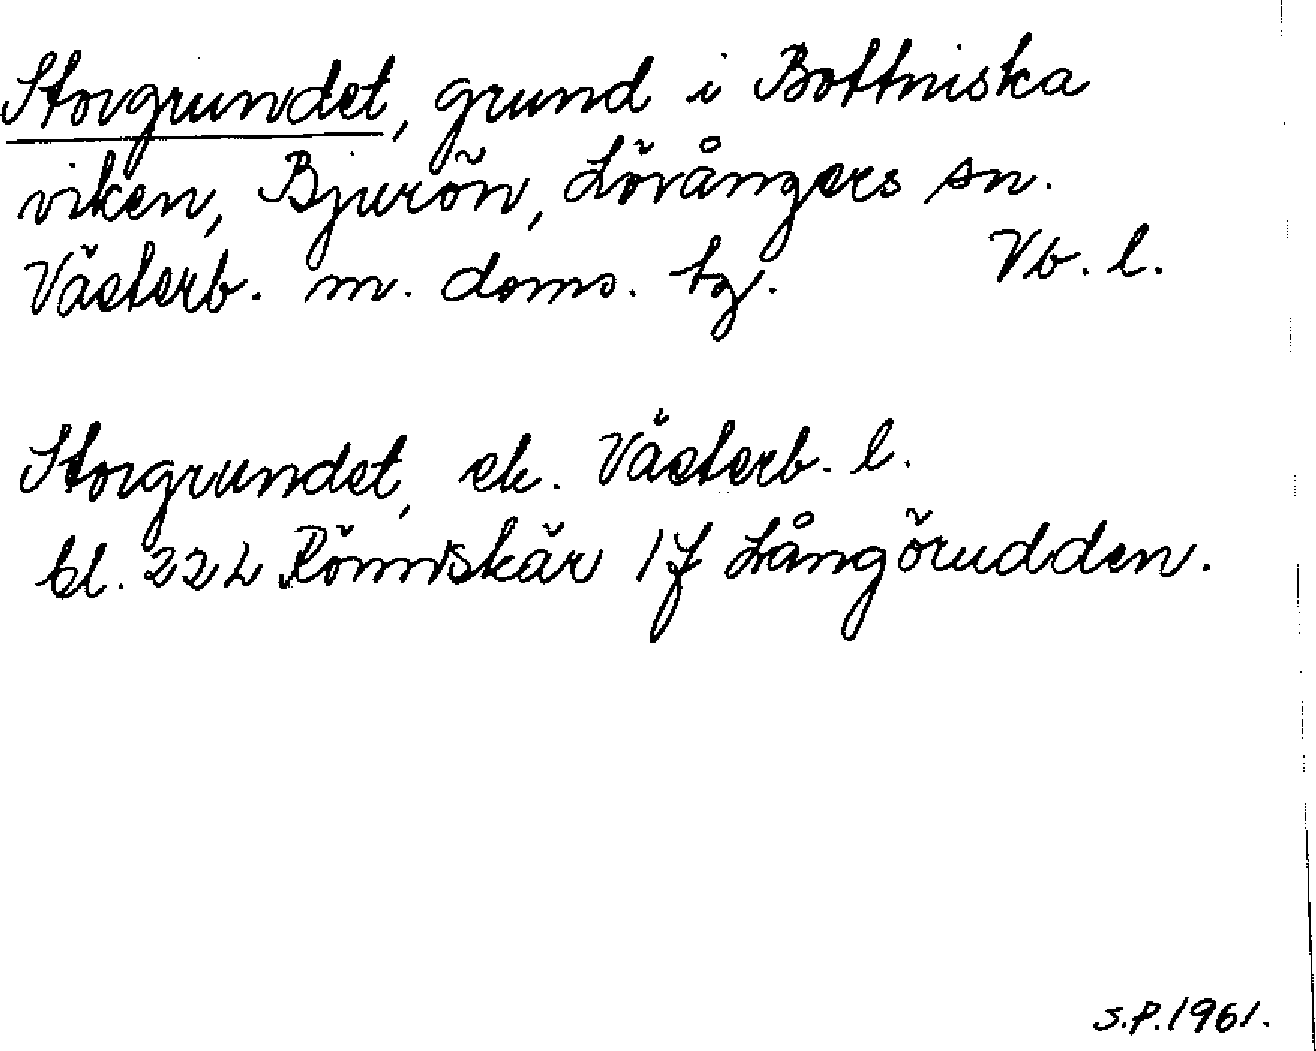 Storgrundet, grund i Bottniska
viken, Bjurön, Lövångers sn.
Västerb. m. doms. tg. Vb. l.
Storgrundet, ek. Västerb. l.
bl. 22L Rönnskär 1f Långörudden.
S.P.1961.